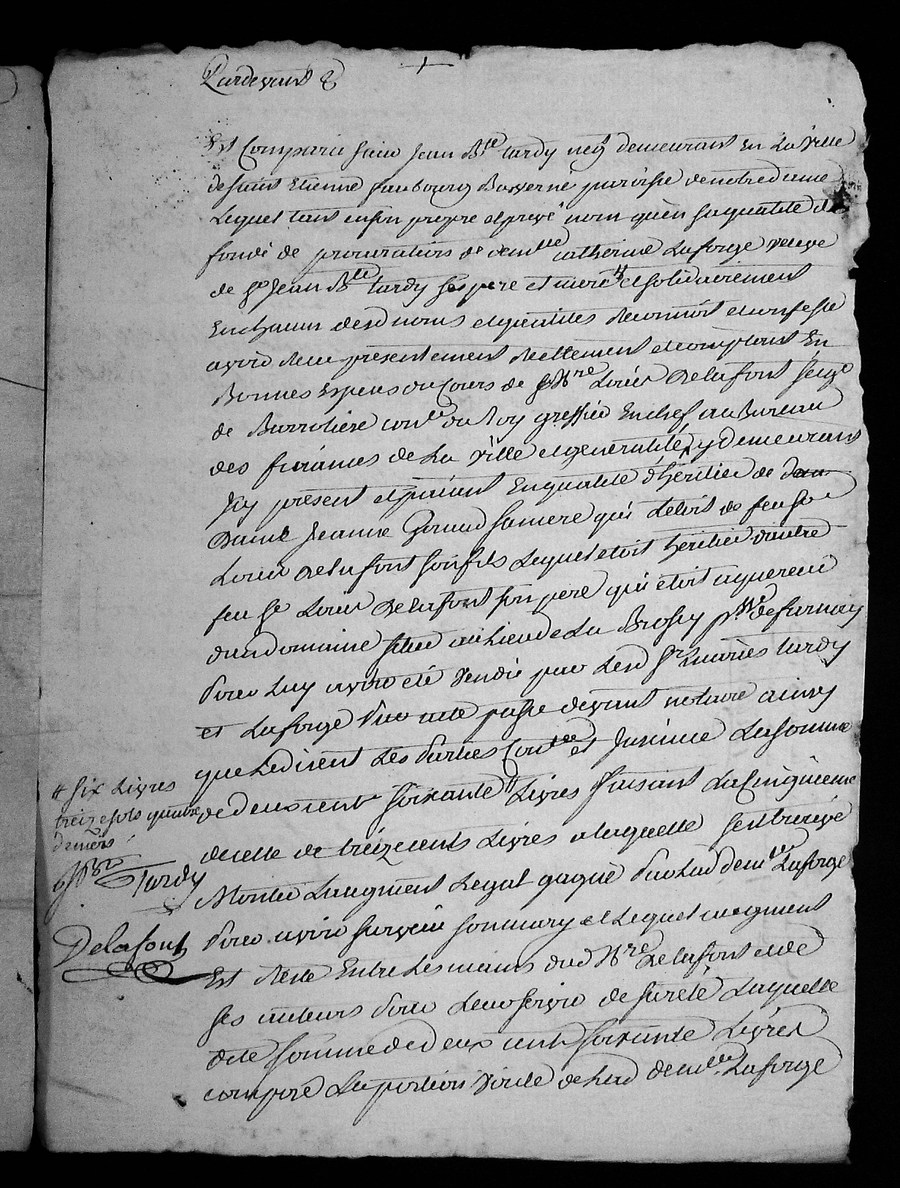 Pardevant &
Est Comparu sieur Jean Bte tardy neg demeurant En La Ville
de saint Etienne faubourg paroisse de notre dame
Lequel tant en son propre et privé nom qu'en sa qualité de
fondé de procuration de demlle catherine Laforge veuve
de Sr Jean Bte tardy ses pere et mere et solidairement
En chacun desd noms et qualités reconnoit et confesse
avoir receu présentement reellement et comptant En
Bonnes Especes du Cours de Mre Loüis Delafont seigr
de Barroliere coner du Roy greffier En chef au Bureau
des finances de La ville et generalité y demeurant
Icy present et paiant En qualité d'heritier de
Dame Jeanne sa mere qui l'etoit de feu Sr
Loüis Delafont son fils Lequel etoit heritier d'autre
feu Sr Loüis Delafont son pere qui etoit aquereur
d'un domaine situé au Lieu de La Brossy psse de furnay
Pour Luy avoir été Vendu par Lesd Srs mariés tardy
et Laforge Par acte passé devant notaire ainsy
que Le disent Les Parties Contes et Jcelui La somme
de deux cent soixante # Livres faisant La Cinquieme
de celle de treize cents Livres a laquelle s'est trouvé
Monter L'augment Legal gagné Par Lad demlle Laforge
Pour avoir survécu son mary et Lequel augment
Est resté Entre Les mains dud Mre Delafont et de
ses auteurs Pour Leur servir de sureté Laquelle
dite somme de deux cent soixante Livres
compose La portion Virile de Lad demlle Laforge
# six Livres
treize sols quatre
deniers
Tardy
Delafont